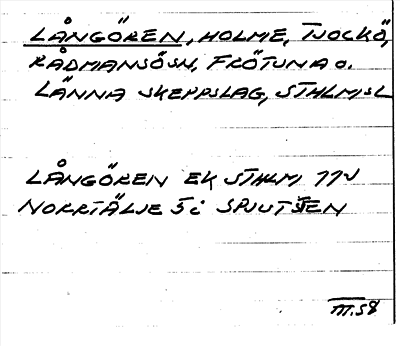 LÅNGÖREN, HOLME, TJOCKÖ,
RÅDMANSÖSN, FRÖTUNA O.
LÄNNA SKEPPSLAG, STHLMSL
LÅNGÖREN EK STHLM 11V
NORRTÄLJE 5 i SPJUTSJEN
III.58